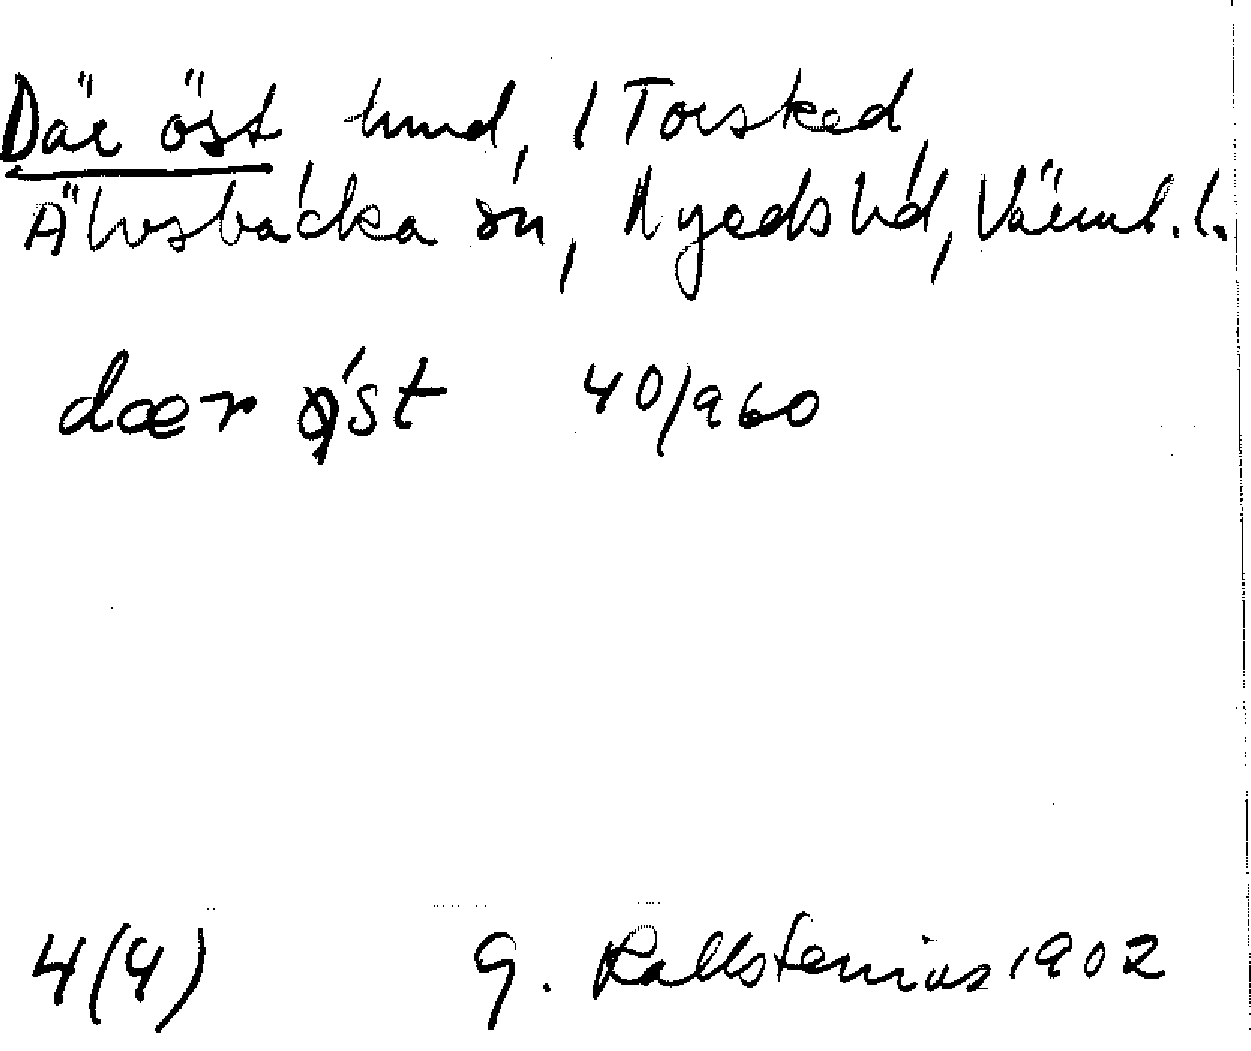 Där öst hmd, i Torsked,
Älvsbacka sn, Nyeds hd, Värml. l.
dær ǫ́st 40/960
4(4) G. Kallstenius 1902